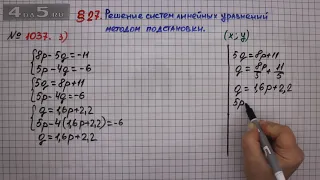 4uk5.ru
§27. Решение систем линейных уравнений
методом подстановки.
№ 1037. з)
(x; y)
8p-5q=-11
5p-4q=-6
5q=8p+11
5p-4q=-6
q=1,6p+2,2
5p-4(1,6p+2,2)=-6
q=1,6p+2,2
5q=8p+11
q=8p/5+11/5
q=1,6p+2,2
5p